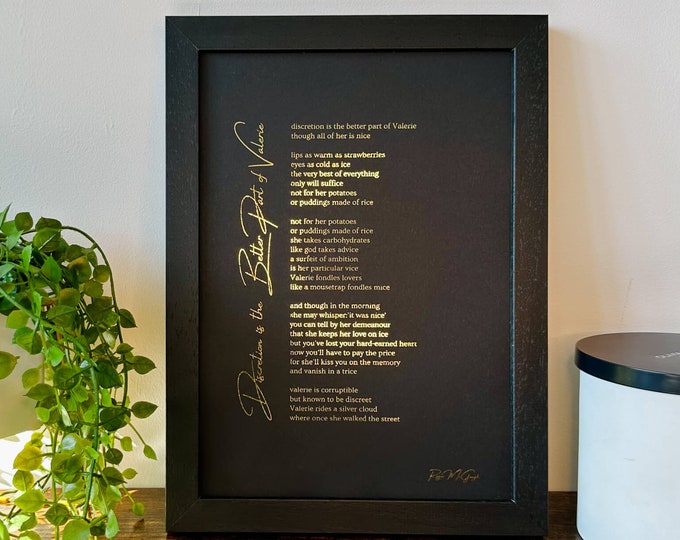 Discretion is the Better Part of Valerie
discretion is the better part of Valerie
though all of her is nice
lips as warm as strawberries
eyes as cold as ice
the very best of everything
only will suffice
not for her potatoes
or puddings made of rice
not for her potatoes
or puddings made of rice
she takes carbohydrates
like god takes advice
a surfeit of ambition
is her particular vice
Valerie fondles lovers
like a mousetrap fondles mice
and though in the morning
she may whisper:'it was nice'
you can tell by her demeanour
that she keeps her love on ice
but you've lost your hard-earned heart
now you'll have to pay the price
for she'll kiss you on the memory
and vanish in a trice
valerie is corruptible
but known to be discreet
Valerie rides a silver cloud
where once she walked the street
Roger McGough